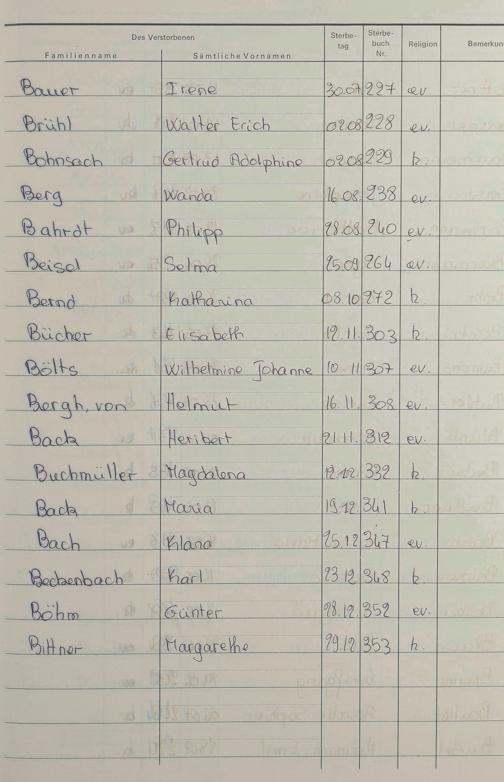 Des Verstorbenen Sterbe- Sterbe- Religion Bemerkun
tag buch
Familienname Sämtliche Vornamen Nr.
Bauer Irene 30.07 227 ev.
Brühl Walter Erich 02.08 228 ev.
Bohnsach Gertrud Adolphine 02.08 229 k.
Berg Wanda 16.08. 238 ev.
Bahrdt Philipp 28.08. 240 ev.
Beisel Selma 25.09 264 ev.
Bernd Katharina 08.10 272 k.
Bücher Elisabeth 12.11. 303 k.
Bölts Wilhelmine Johanne 10.11 307 ev.
Bergh, von Helmut 16.11. 308 ev.
Back Heribert 21.11. 312 ev.
Buchmüller Magdalena 12.12 332 k.
Back Maria 19.12. 341 k.
Bach Klara 25.12 347 ev.
Beckenbach Karl 23.12 348 k.
Böhm Günter 28.12. 352 ev.
Bittner Margarethe 29.12 353 k.